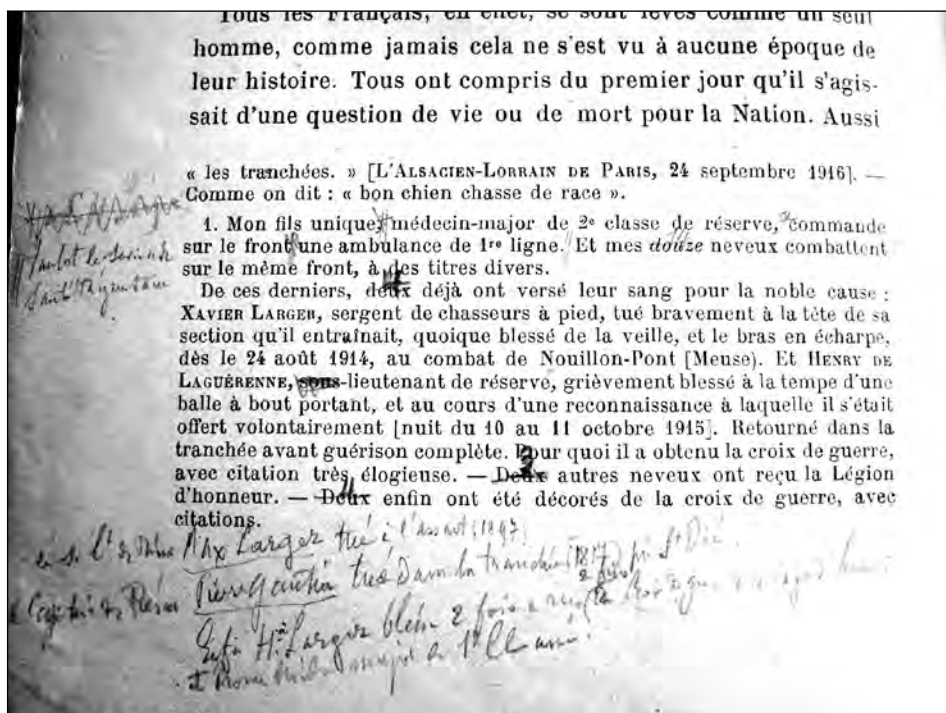 Tous les Français, en effet, se sont levés comme un seul
homme, comme jamais cela ne s'est vu à aucune époque de
leur histoire. Tous ont compris du premier jour qu'il s'agis-
sait d'une question de vie ou de mort pour la Nation. Aussi
« les tranchées. » [L'ALSACIEN-LORRAIN DE PARIS, 24 septembre 1916]. —
Comme on dit : « bon chien chasse de race ».
1. Mon fils unique, médecin-major de 2e classe de réserve, commande
sur le front une ambulance de 1re ligne. Et mes douze neveux combattent
sur le même front, à des titres divers.
De ces derniers, deux déjà ont versé leur sang pour la noble cause :
XAVIER LARGER, sergent de chasseurs à pied, tué bravement à la tête de sa
section qu'il entraînait, quoique blessé de la veille, et le bras en écharpe,
dès le 24 août 1914, au combat de Nouillon-Pont [Meuse]. Et HENRY DE
LAGUÉRENNE, sous-lieutenant de réserve, grièvement blessé à la tempe d'une
balle à bout portant, et au cours d'une reconnaissance à laquelle il s'était
offert volontairement [nuit du 10 au 11 octobre 1915]. Retourné dans la
tranchée avant guérison complète. Pour quoi il a obtenu la croix de guerre,
avec citation très élogieuse. — Deux autres neveux ont reçu la Légion
d'honneur. — Deux enfin ont été décorés de la croix de guerre, avec
citations.
Max Larger tué à l'assaut
tué dans la tranchée
Larger blessé 2 fois